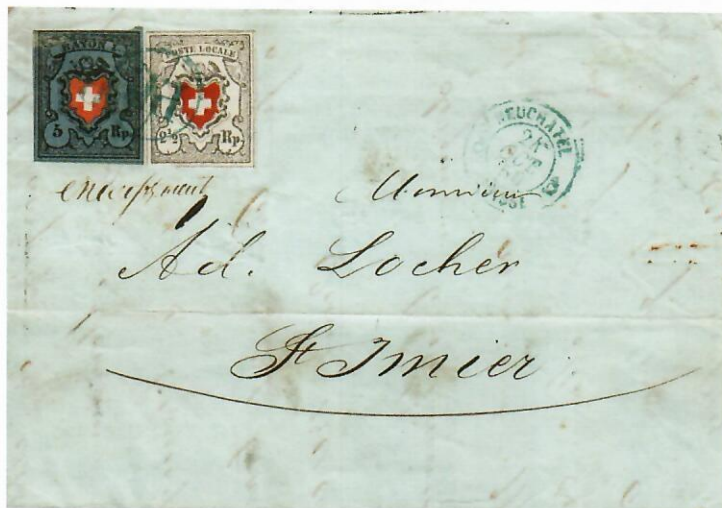 RAYON I
5 Rp.
POSTE LOCALE
2½ Rp.
NEUCHATEL
Monsieur
Ad. Locher
St Imier